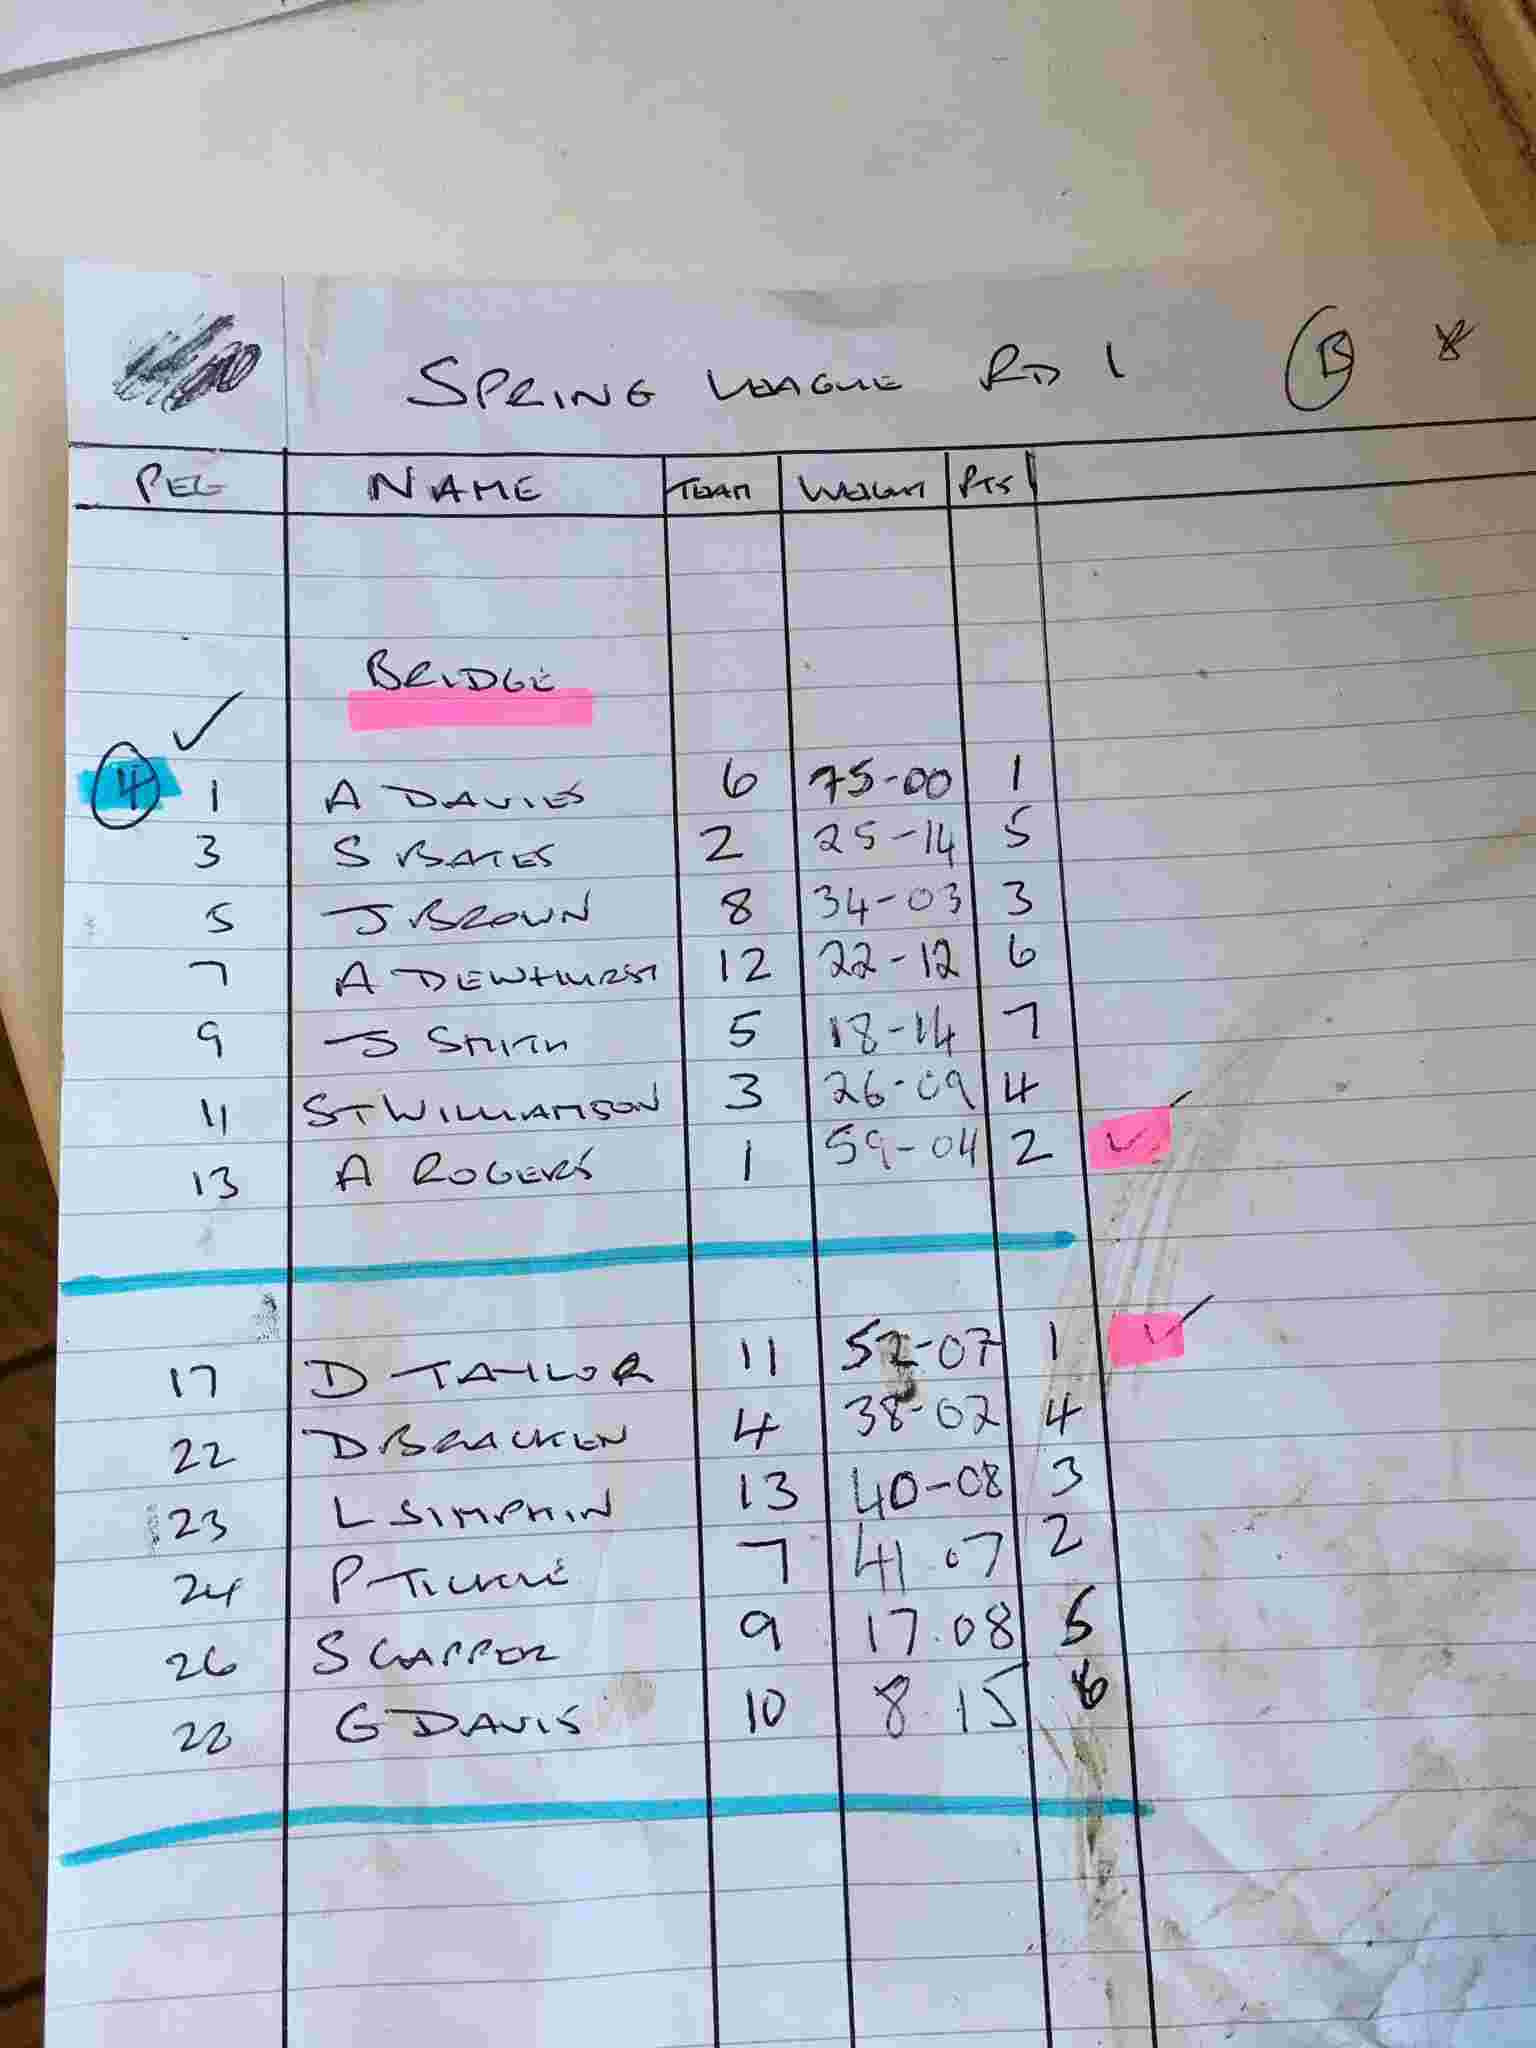 SPRING LEAGUE RD 1 B
PEG NAME TEAM WEIGHT PTS
BRIDGE
4 1 A DAVIES 6 75-00 1
3 S BATES 2 25-14 5
5 J BROWN 8 34-03 3
7 A DEWHURST 12 22-12 6
9 J SMITH 5 18-14 7
11 ST WILLIAMSON 3 26-09 4
13 A ROGERS 1 59-04 2
17 D TAYLOR 11 52-07 1
22 D BRACKEN 4 38-02 4
23 L SIMPKIN 13 40-08 3
24 P TICKLE 7 41.07 2
26 S CAPPER 9 17.08 5
28 G DAVIS 10 8 15 6